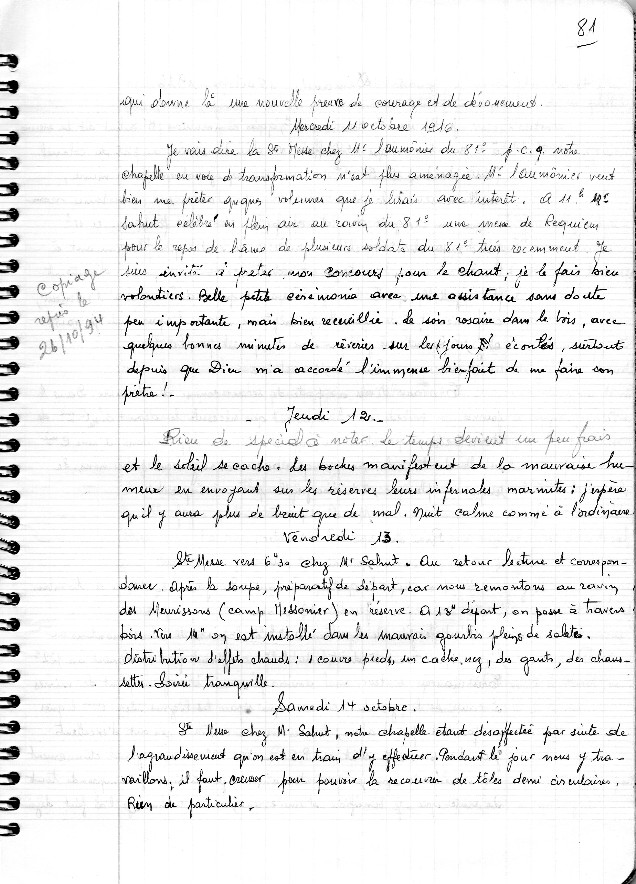 81
qui donne là une nouvelle preuve de courage et de dévouement.
Mercredi 11 octobre 1916.
Je vais dire la Ste Messe chez Mr l'aumônier du 81e p.c.q. notre
chapelle en voie de transformation n'est plus aménagée. Mr l'aumônier veut
bien me prêter quques volumes que je lirais avec intérêt. A 11h Mr
Sahut célèbre en plein air au ravin du 81e une messe de Requiem
pour le repos de l'âme de plusieurs soldats du 81e tués récemment. Je
suis invité à prêter mon concours pour le chant; je le fais bien
volontiers. Belle petite cérémonie avec une assistance sans doute
peu importante, mais bien recueillie. Le soir rosaire dans le bois, avec
quelques bonnes minutes de rêveries sur les jours écoulés, surtout
depuis que Dieu m'a accordé l'immense bienfait de me faire son
prêtre!-
Copiage
repris le
26/10/94
- Jeudi 12.-
Rien de spécial à noter le temps devient un peu frais
et le soleil se cache. Les boches manifestent de la mauvaise hu-
meur en envoyant sur les réserves leurs infernales marmites; j'espère
qu'il y aura plus de bruit que de mal. Nuit calme comme à l'ordinaire
Vendredi 13.
Ste Messe vers 6h30 chez Mr Sahut. Au retour lecture et correspon-
dance. Après la soupe, préparatif de départ, car nous remontons au ravin
des Meurissons (camp Messonier) en réserve. A 13h départ, on passe à travers
bois. Vers 14h on est installé dans les mauvais gourbis pleins de saletés.
Distribution d'effets chauds: 1 couvre pieds, un cache-nez, des gants, des chaus-
settes. Soirée tranquille.
Samedi 14 octobre.
Ste Messe chez Mr Sahut, notre chapelle étant désaffectée par suite de
l'agrandissement qu'on est en train d'y effectuer. Pendant le jour nous y tra-
vaillons, il faut creuser pour pouvoir la recouvrir de tôles demi circulaires.
Rien de particulier.